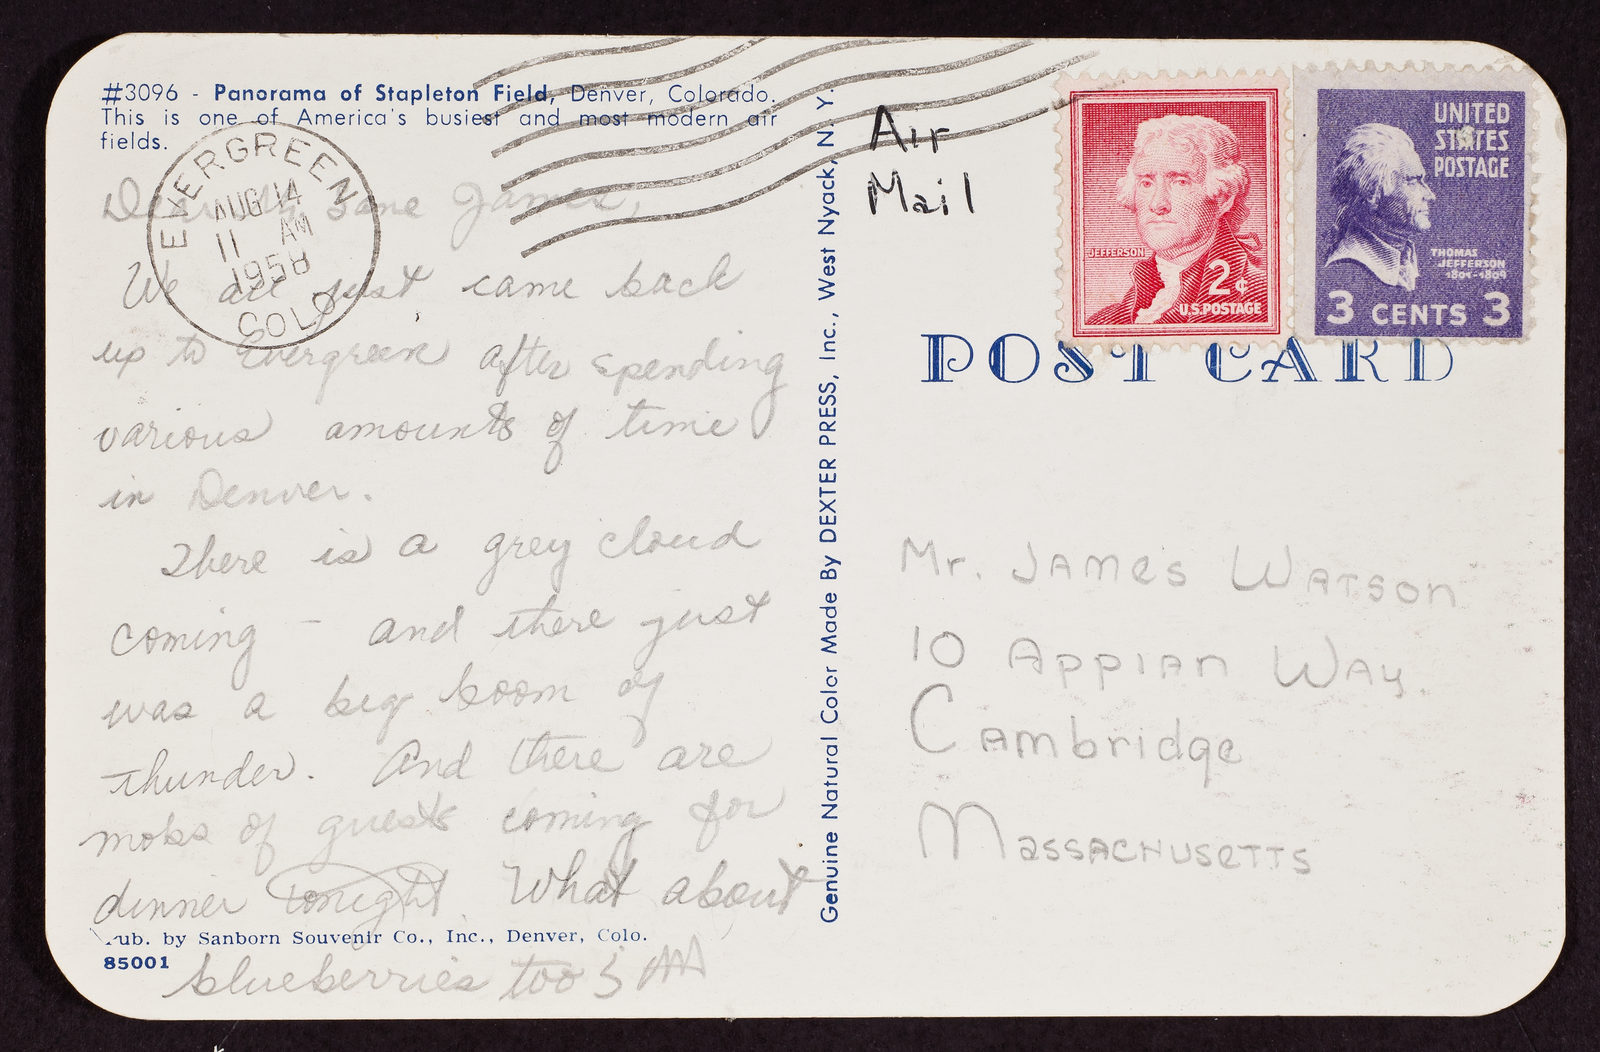 #3096 - Panorama of Stapleton Field, Denver, Colorado.
This is one of America's busiest and most modern air
fields.
EVERGREEN
AUG 14
11 AM
1958
COLO
Air
Mail
JEFFERSON
2¢
U.S. POSTAGE
UNITED
STATES
POSTAGE
THOMAS
JEFFERSON
1801-1809
3 CENTS 3
POST CARD
Dear Jane James,
We all just came back
up to Evergreen after spending
various amounts of time
in Denver.
There is a grey cloud
coming - and there just
was a big boom of
thunder. And there are
mobs of guests coming for
dinner tonight. What about
blueberries too
Pub. by Sanborn Souvenir Co., Inc., Denver, Colo.
85001
Genuine Natural Color Made By DEXTER PRESS, Inc., West Nyack, N. Y.
Mr. James Watson
10 Appian Way.
Cambridge
Massachusetts